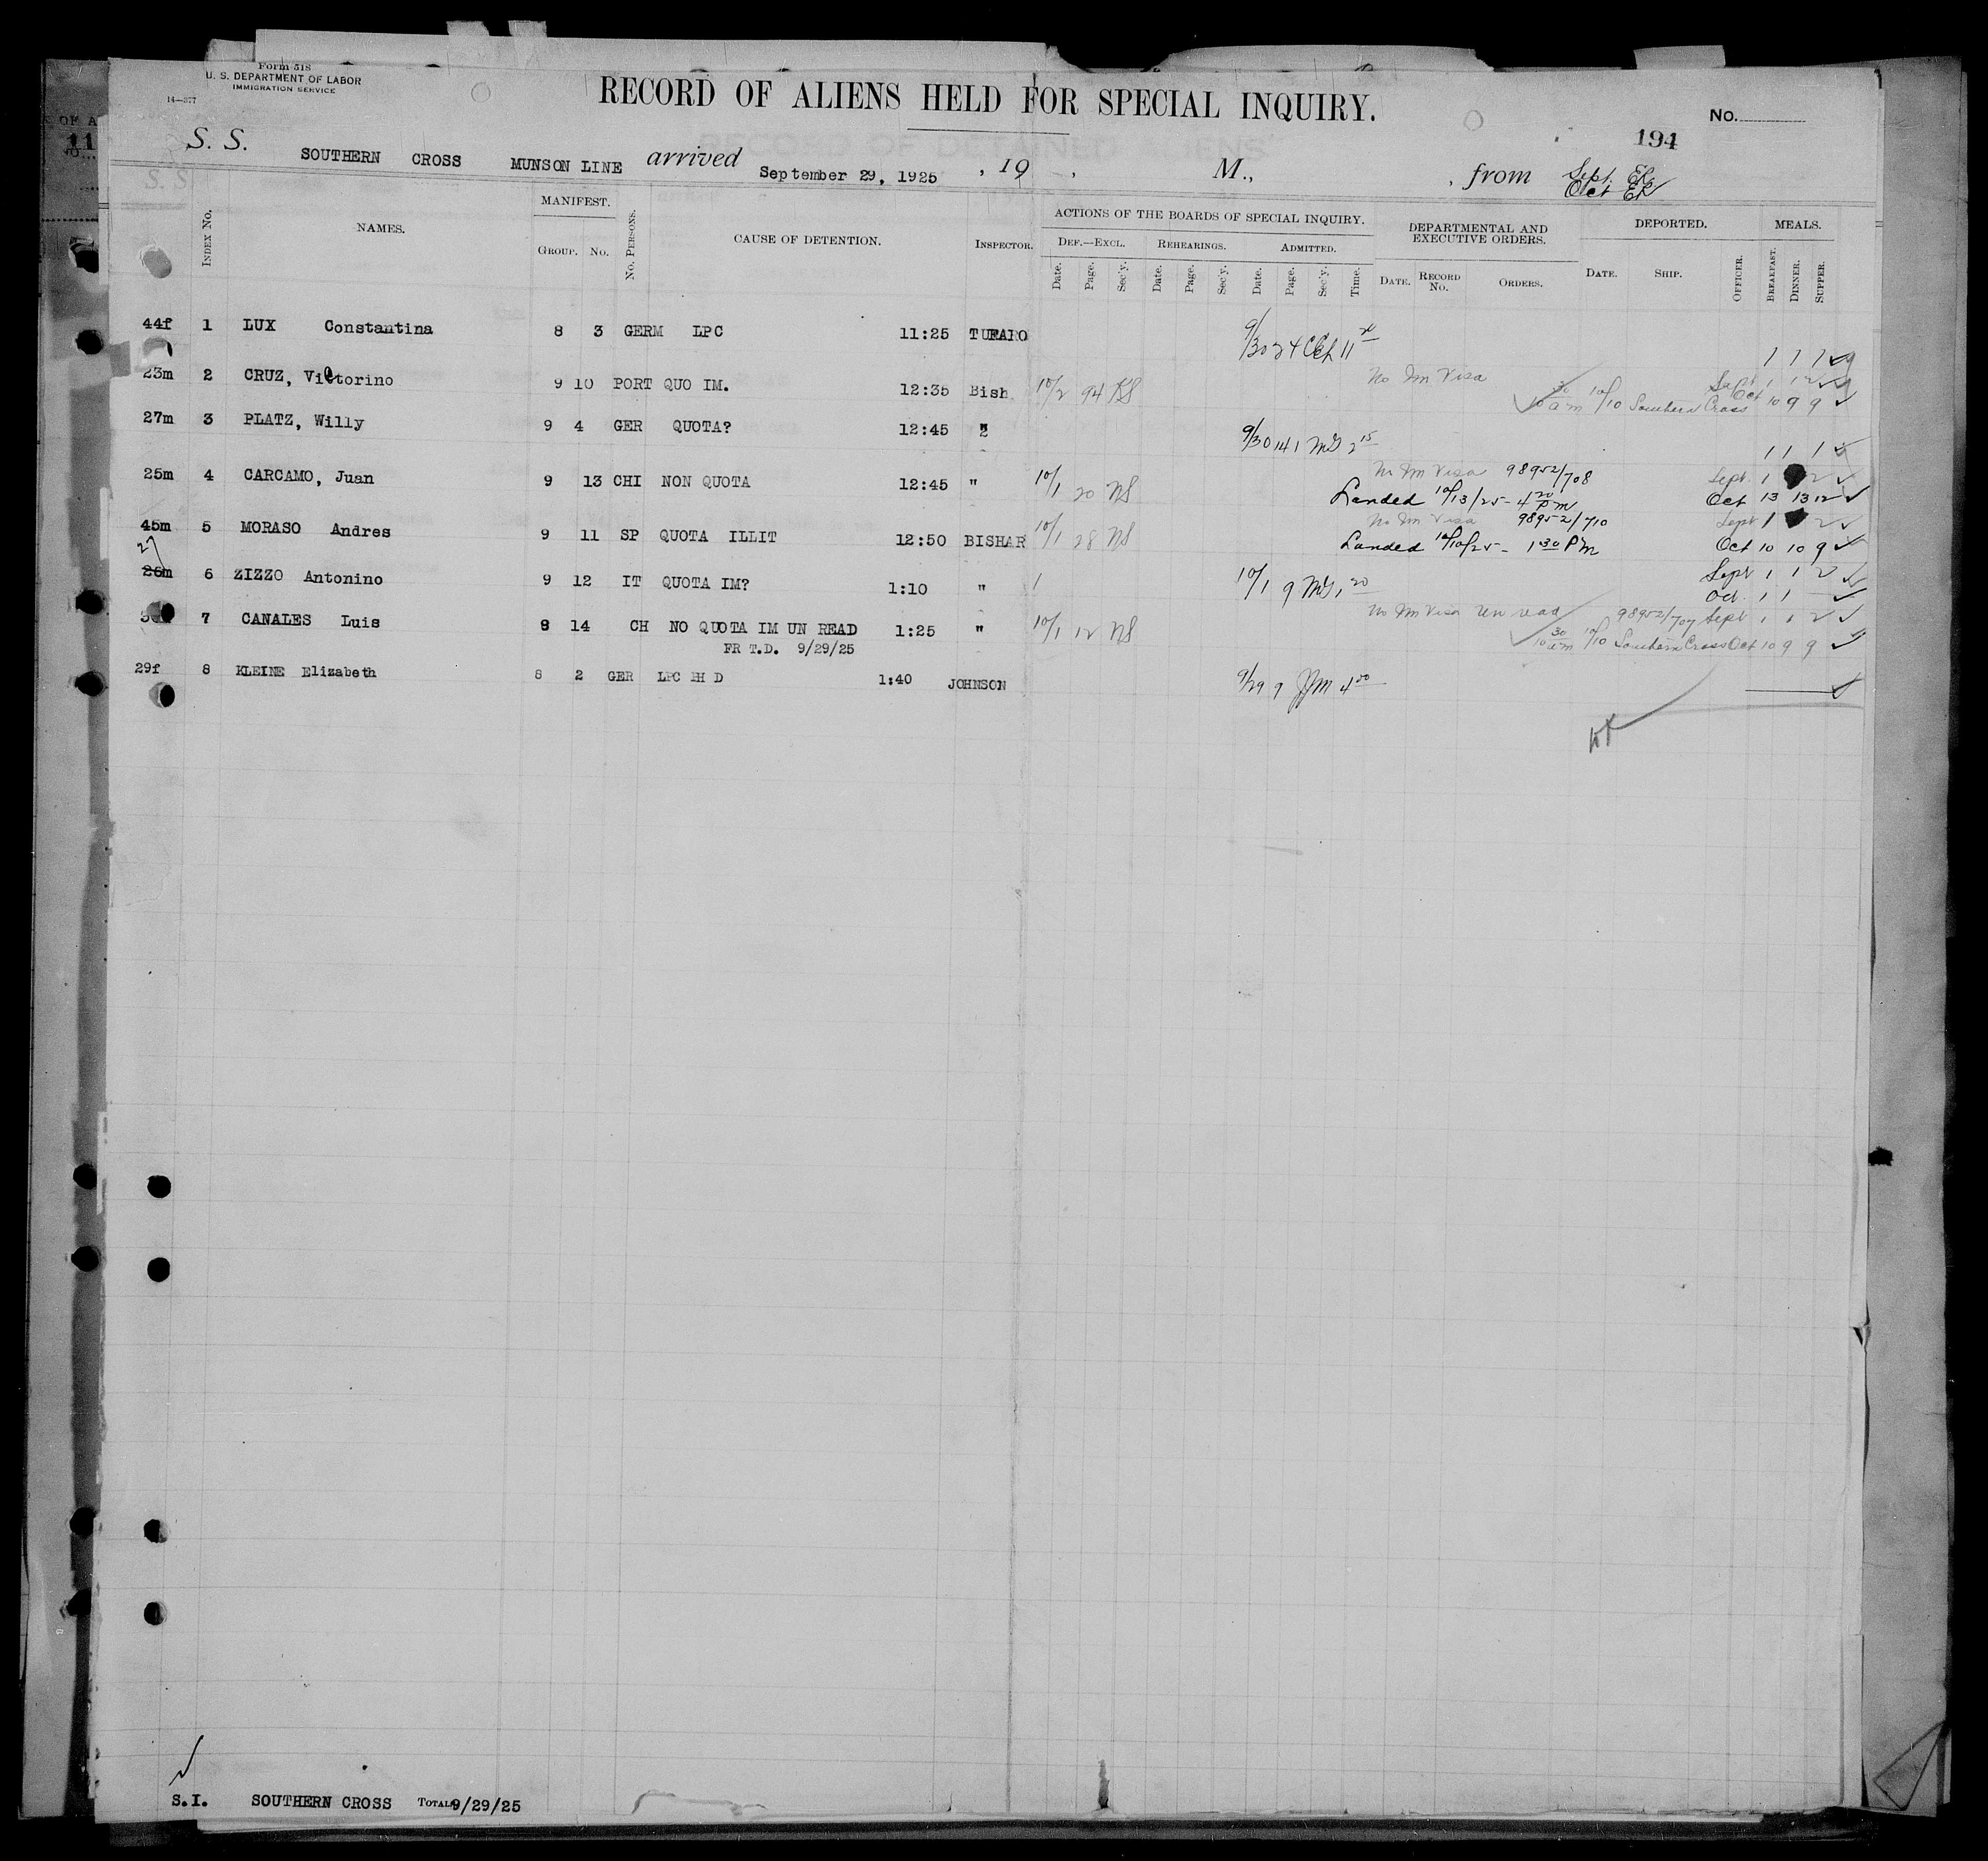 Form 518
U. S. DEPARTMENT OF LABOR
IMMIGRATION SERVICE
14—377
RECORD OF ALIENS HELD FOR SPECIAL INQUIRY.
No.
194
S. S. SOUTHERN CROSS MUNSON LINE arrived September 29, 1925 , 19 , M., , from Sept. ER
Oct ER
INDEX No. NAMES. MANIFEST. GROUP. No. No. PERSONS. CAUSE OF DETENTION. INSPECTOR. ACTIONS OF THE BOARDS OF SPECIAL INQUIRY. DEPARTMENTAL AND EXECUTIVE ORDERS. DEPORTED. MEALS.
DEF.—EXCL. REHEARINGS. ADMITTED.
Date. Page. Sec'y. Date. Page. Sec'y. Date. Page. Sec'y. Time. DATE. RECORD No. ORDERS. DATE. SHIP. OFFICER. BREAKFAST. DINNER. SUPPER.
44f 1 LUX Constantina 8 3 GERM LPC 11:25 9/30 1 1 1
No Im Visa
23m 2 CRUZ, Victorino 9 10 PORT QUO IM. 12:35 Bish 10/2 94 KS Sept 1 1 2
10 30 am 10/10 Southern Cross Oct 10 9 9
27m 3 PLATZ, Willy 9 4 GER QUOTA? 12:45 " 9/30 141 MG 2 15 1 1 1
No Im Visa 98952/708 Sept. 1 2
25m 4 CARCAMO, Juan 9 13 CHI NON QUOTA 12:45 " 10/1 20 NS Landed 10/13/25 - 4 20 Pm Oct 13 13 12
No Im Visa 98952/710 Sept 1 2
45m 5 MORASO Andres 9 11 SP QUOTA ILLIT 12:50 BISHAR 10/1 28 NS Landed 10/10/25 - 1 30 PM Oct 10 10 9
27
26m 6 ZIZZO Antonino 9 12 IT QUOTA IM? 1:10 " 1 10/1 9 MG 1 20 Sept 1 1 2
Oct. 1 1
No Im Visa Un read 98952/707 Sept 1 1 2
7 CANALES Luis 8 14 CH NO QUOTA IM UN READ 1:25 " 10/1 12 NS 10 30 am 10/10 Southern Cross Oct 10 9 9
FR T.D. 9/29/25
29f 8 KLEINE Elizabeth 8 2 GER LPC PH D 1:40 JOHNSON 9/29 9 JJM 4 00
S.I. SOUTHERN CROSS TOTAL 9/29/25